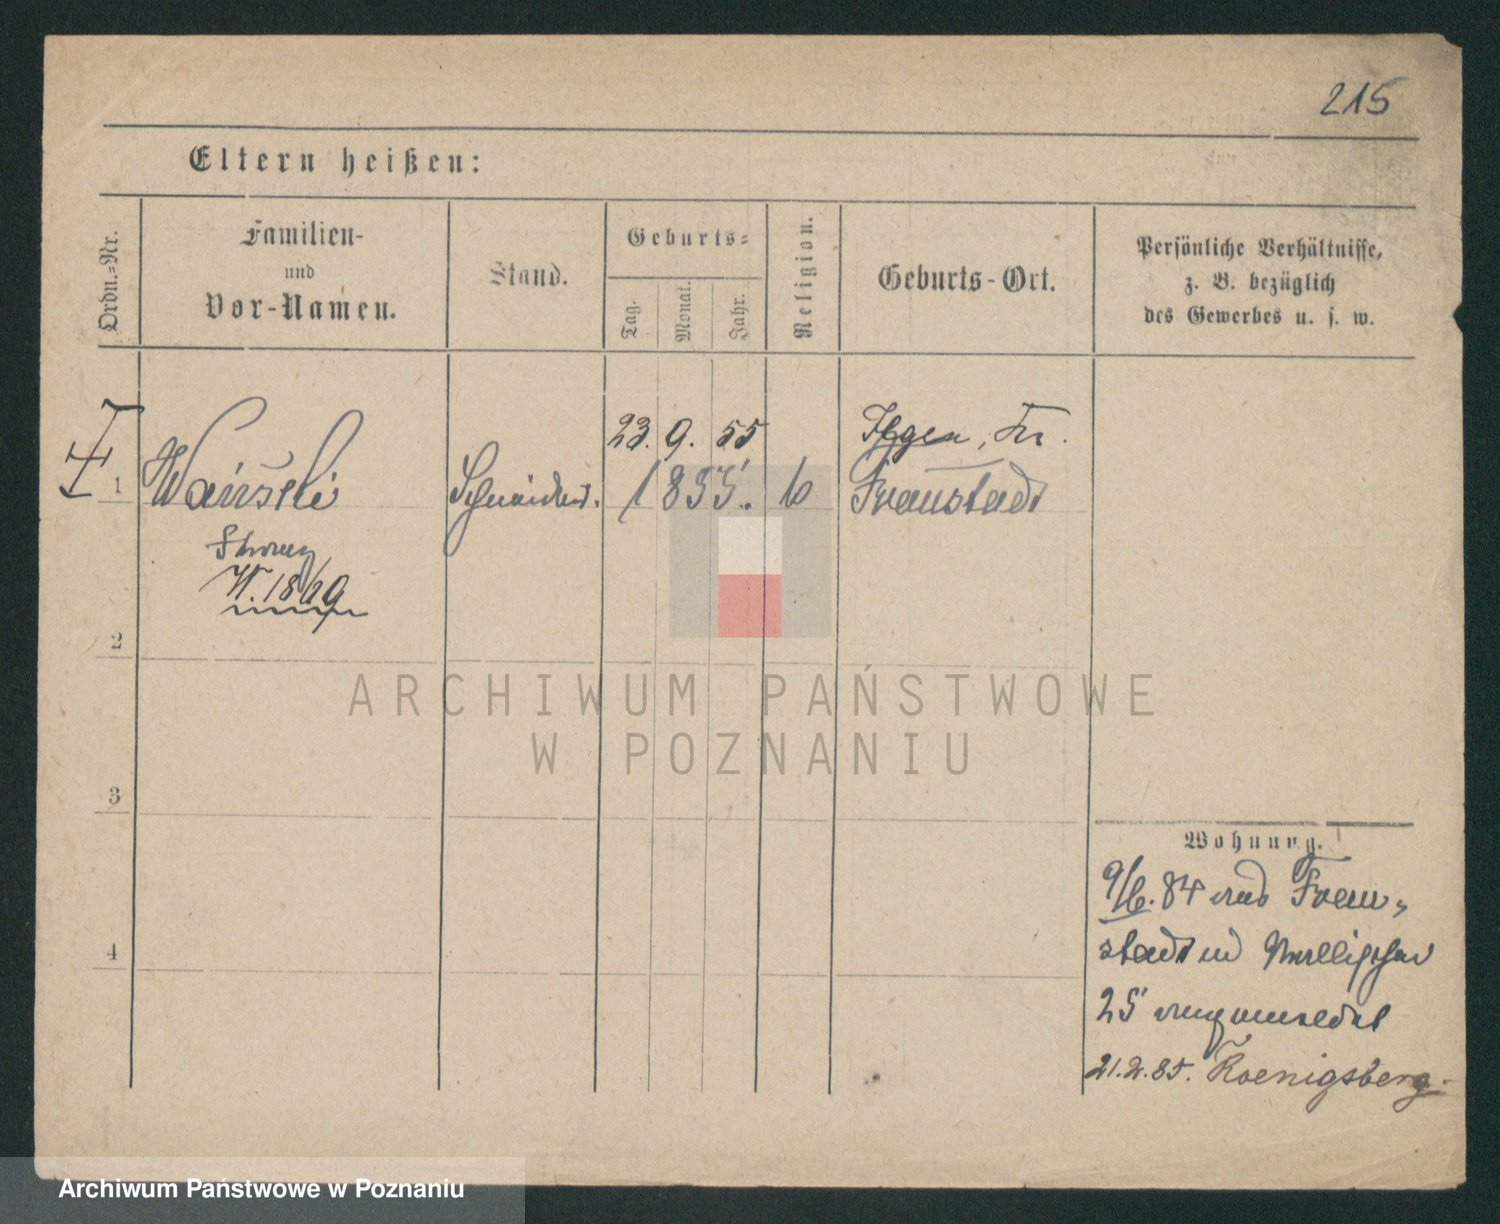 215
Eltern heißen:
Ordn.=Nr.
Familien-
und
Vor-Namen.
Stand.
Geburts=
Tag.
Monat.
Jahr.
Religion.
Geburts-Ort.
Persönliche Verhältnisse,
z. B. bezüglich
des Gewerbes u. s. w.
23. 9. 55
Ilgen, Kr.
1
1855.
Fraustadt
W. 1869
2
ARCHIWUM PAŃSTWOWE
W POZNANIU
3
Wohnung.
9/6. 84 aus Frau-
stadt
4
25 angemeldet
21.2.85. Koenigsberg.
Archiwum Państwowe w Poznaniu